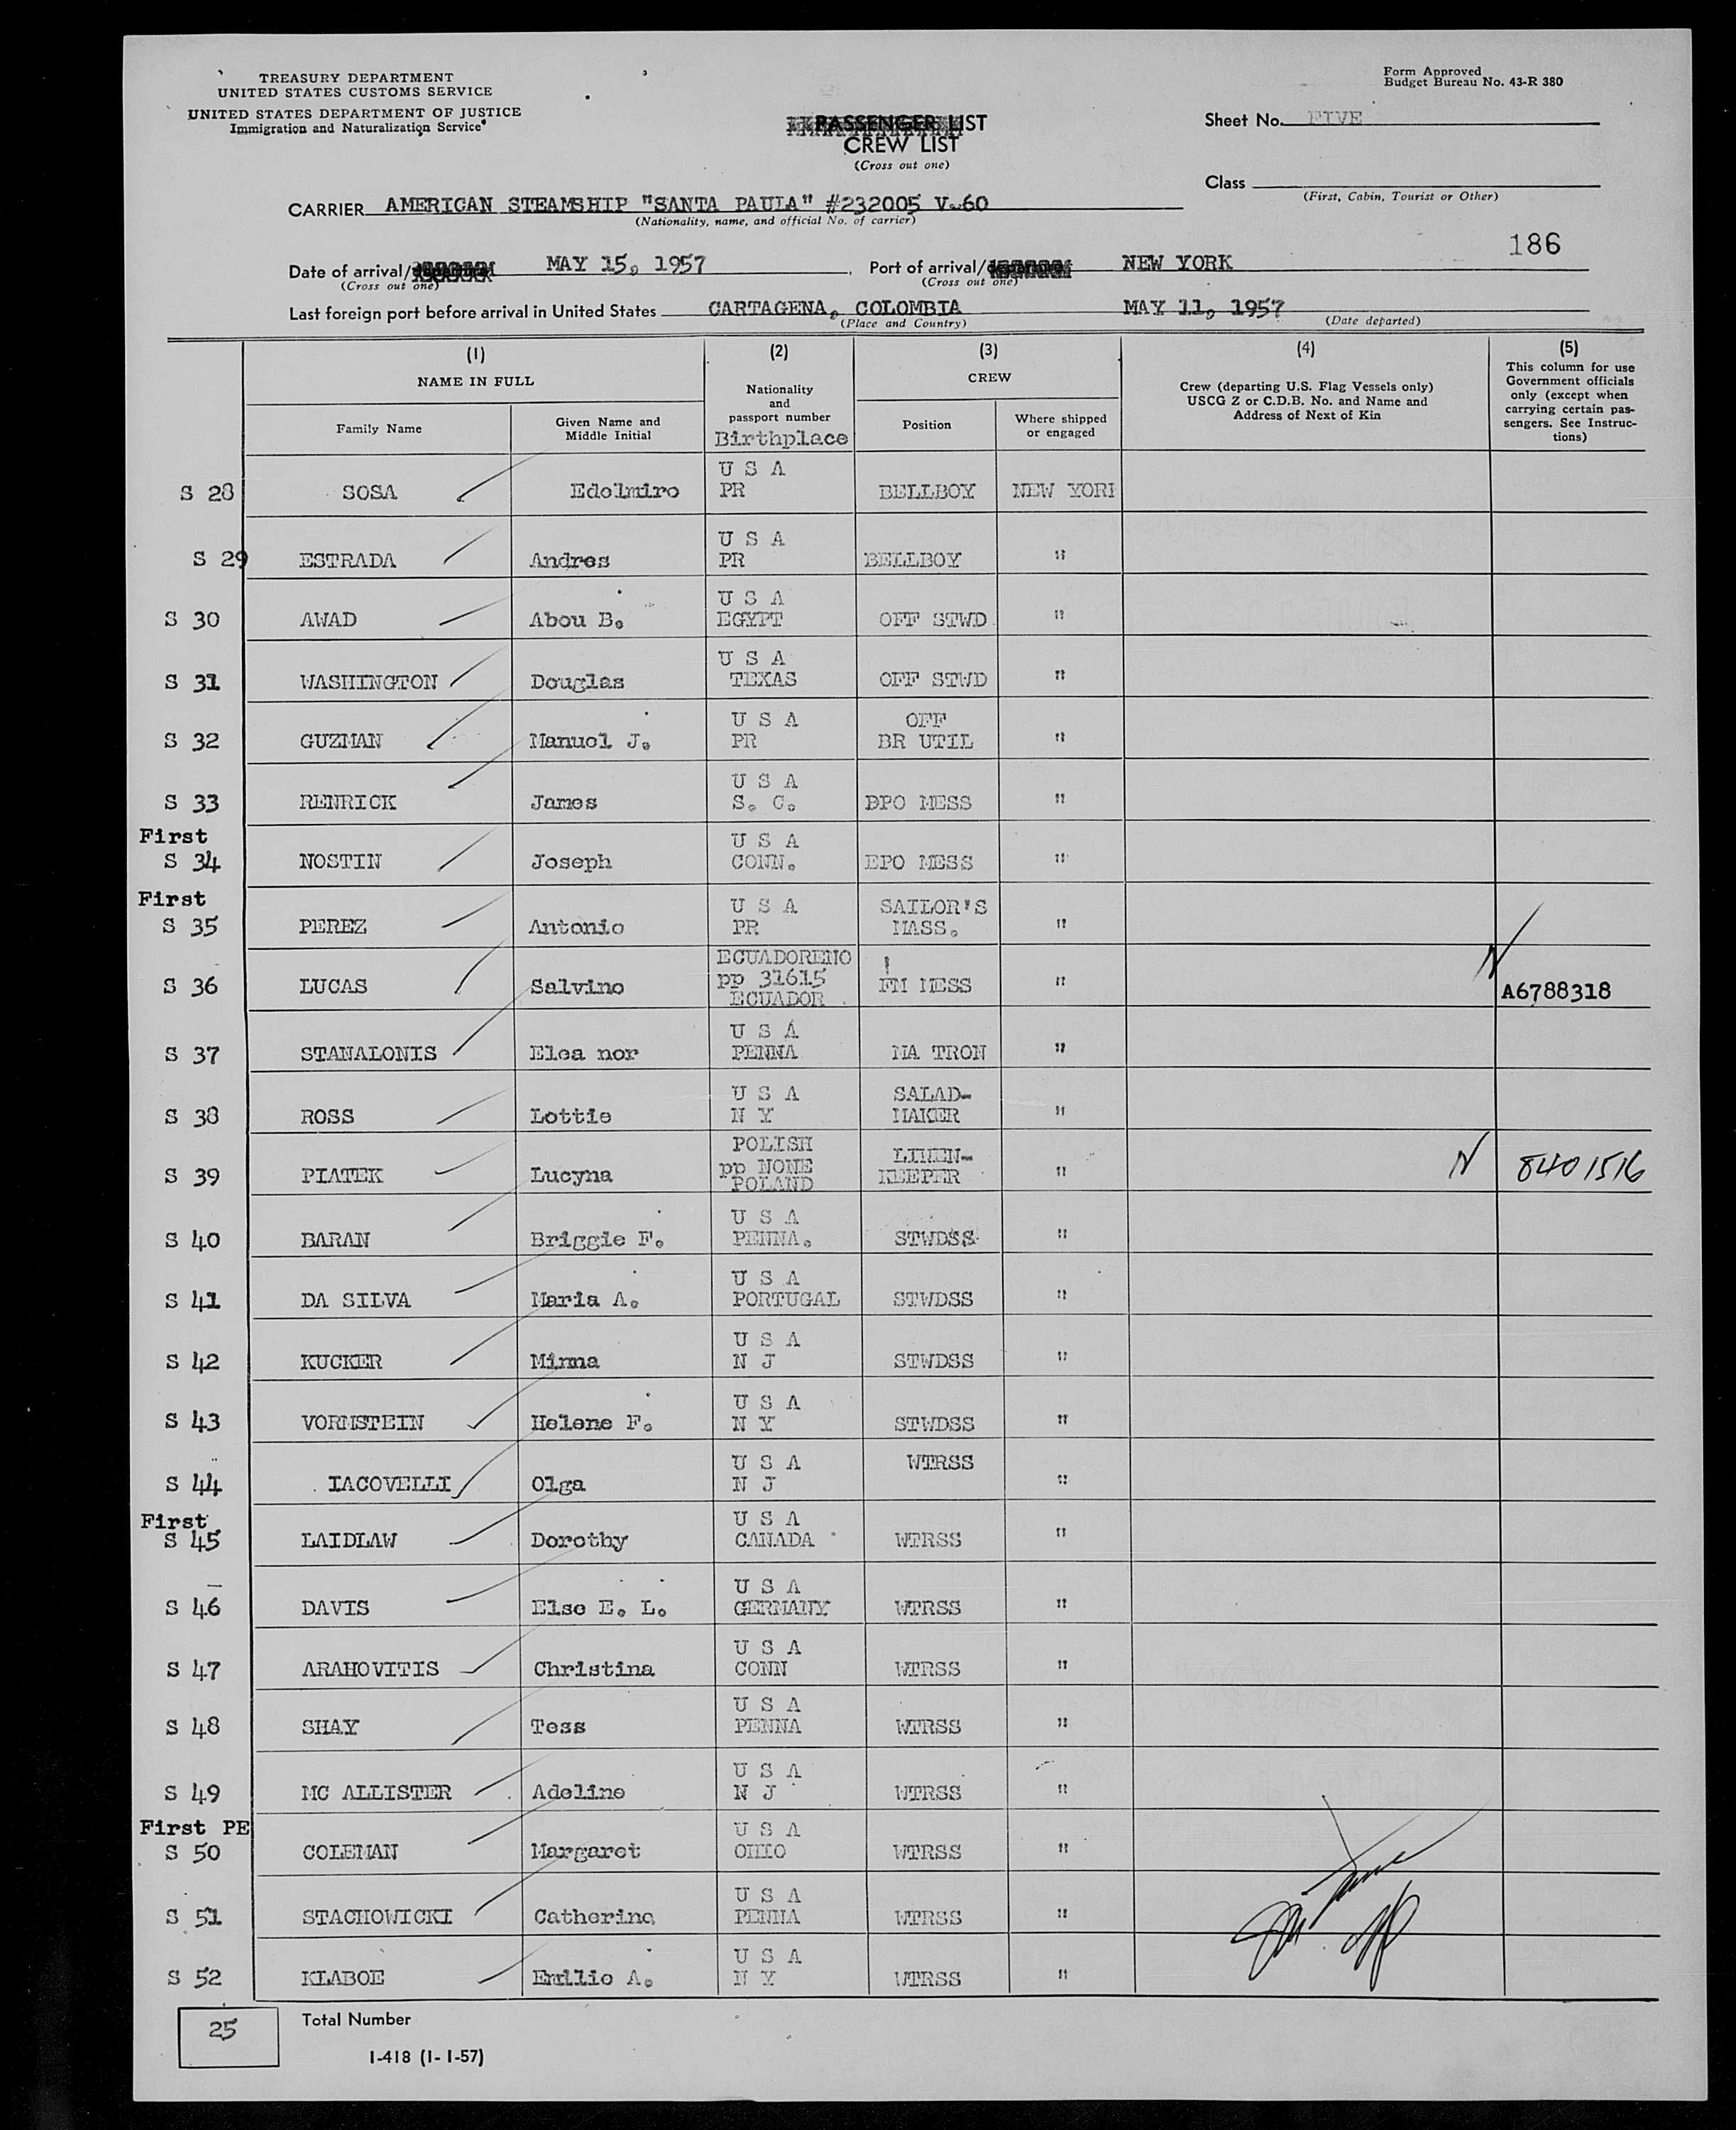 TREASURY DEPARTMENT
UNITED STATES CUSTOMS SERVICE
UNITED STATES DEPARTMENT OF JUSTICE
Immigration and Naturalization Service
Form Approved
Budget Bureau No. 43-R 380
PASSENGER LIST
CREW LIST
(Cross out one)
Sheet No. FIVE
Class
(First, Cabin, Tourist or Other)
CARRIER AMERICAN STEAMSHIP "SANTA PAULA" #232005 V.60
(Nationality, name, and official No. of carrier)
186
Date of arrival/departure MAY 15, 1957 Port of arrival/departure NEW YORK
(Cross out one) (Cross out one)
Last foreign port before arrival in United States CARTAGENA, COLOMBIA MAY 11, 1957
(Place and Country) (Date departed)
(1) (2) (3) (4) (5)
NAME IN FULL
Family Name
Given Name and
Middle Initial
Nationality
and
passport number
Birthplace
CREW
Position
Where shipped
or engaged
Crew (departing U.S. Flag Vessels only)
USCG Z or C.D.B. No. and Name and
Address of Next of Kin
This column for use
Government officials
only (except when
carrying certain pas-
sengers. See Instruc-
tions)
U S A
S 28 SOSA Edelmiro PR BELLBOY NEW YORK
U S A
S 29 ESTRADA Andres PR BELLBOY "
U S A
S 30 AWAD Abou B. EGYPT OFF STWD "
U S A
S 31 WASHINGTON Douglas TEXAS OFF STWD "
U S A OFF
S 32 GUZMAN Manuel J. PR BR UTIL "
U S A
S 33 RENRICK James S. C. DPO MESS "
First U S A
S 34 NOSTIN Joseph CONN. EPO MESS "
First U S A SAILOR'S
S 35 PEREZ Antonio PR MASS. "
ECUADORENO
pp 31615
S 36 LUCAS Salvino ECUADOR FM MESS " N A6788318
U S A
S 37 STANALONIS Elea nor PENNA MA TRON "
U S A SALAD-
S 38 ROSS Lottie N Y MAKER "
POLISH LINEN-
pp NONE
S 39 PIATEK Lucyna POLAND KEEPER " N 8401516
U S A
S 40 BARAN Briggie F. PENNA. STWDSS "
U S A
S 41 DA SILVA Maria A. PORTUGAL STWDSS "
U S A
S 42 KUCKER Minna N J STWDSS "
U S A
S 43 VORMSTEIN Helene F. N Y STWDSS "
U S A WTRSS
S 44 IACOVELLI Olga N J "
First U S A
S 45 LAIDLAW Dorothy CANADA WTRSS "
U S A
S 46 DAVIS Else E. L. GERMANY WTRSS "
U S A
S 47 ARAHOVITIS Christina CONN WTRSS "
U S A
S 48 SHAY Tess PENNA WTRSS "
U S A
S 49 MC ALLISTER Adeline N J WTRSS "
First PE U S A
S 50 COLEMAN Margaret OHIO WTRSS "
U S A
S 51 STACHOWICKI Catherine PENNA WTRSS "
U S A
S 52 KLABOE Emilie A. N Y WTRSS "
25 Total Number
I-418 (1-1-57)